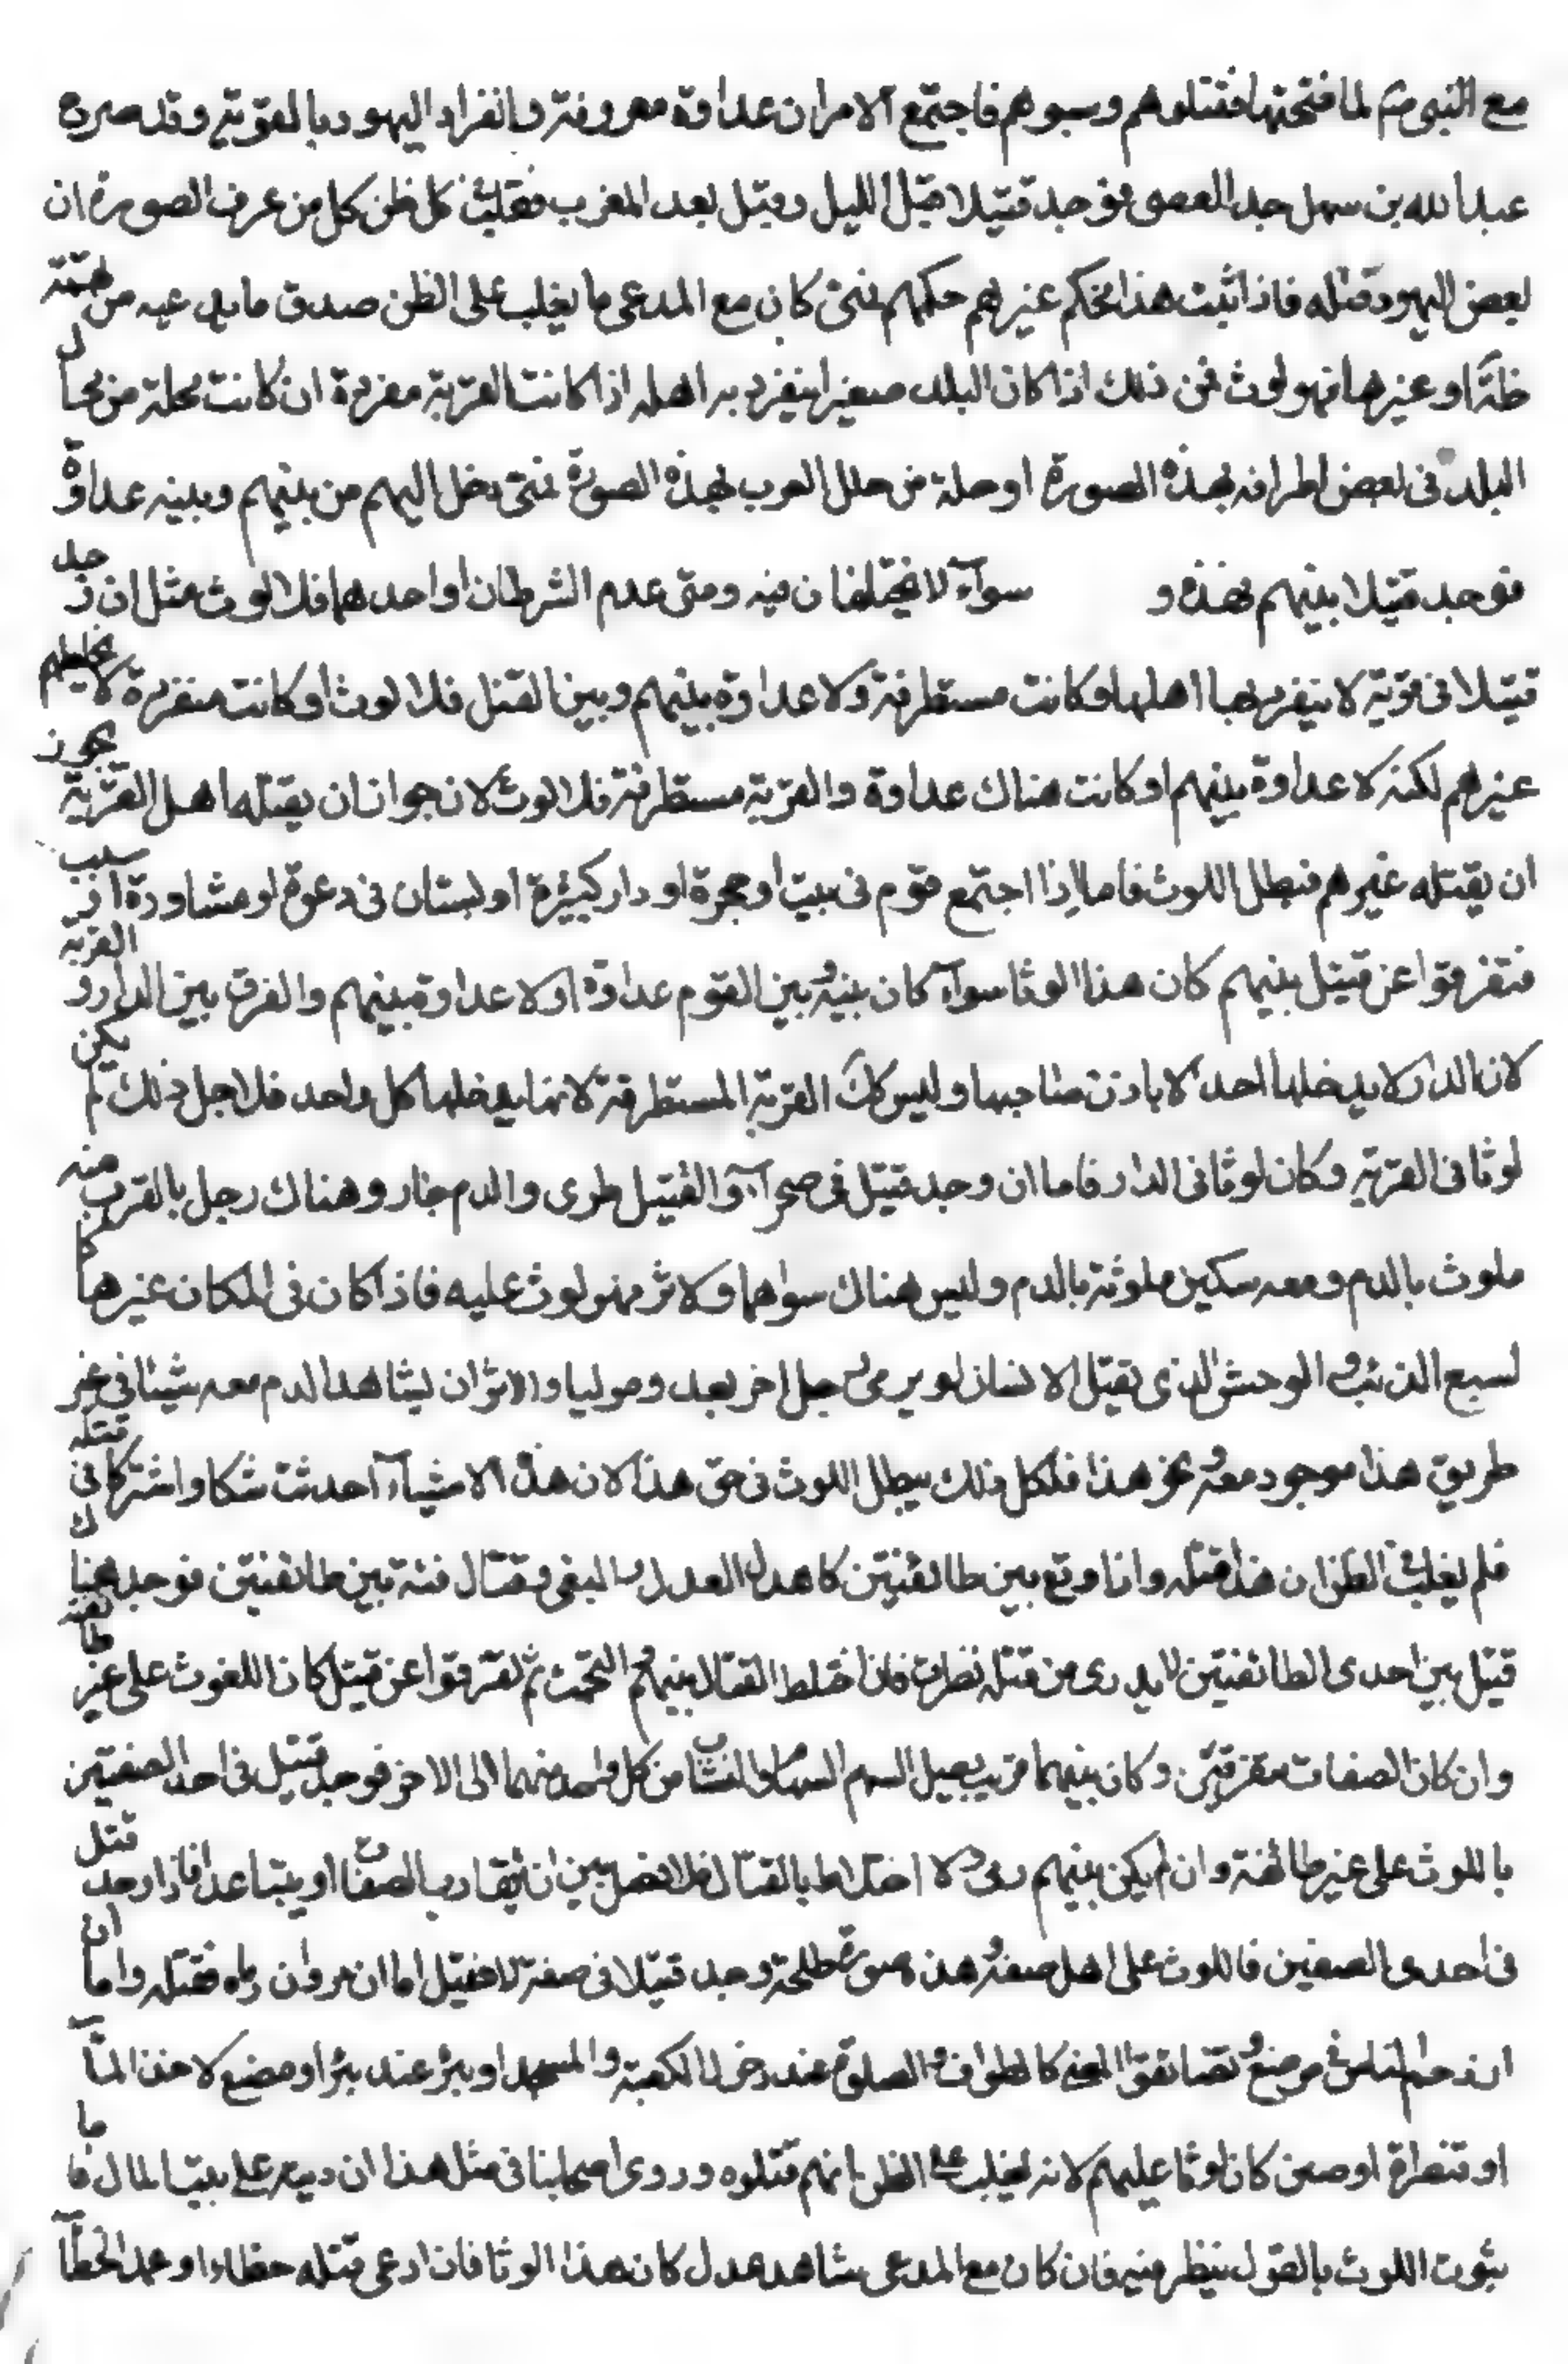 مع النبي ص لما فتحتها فقتلوهم وسبوهم فاجتمع الامران عداوة معروفة وانفراد اليهود بالقوية وقد صره
عبد الله بن سهل جد العصى فوجد قتيلا قبل الليل وقيل بعد المغرب فغلب كل ظن كل من عرف الصورة ان
بعض اليهود قتله فاذا ثبت هذا الحكم غيرهم حكمهم فمتى كان مع المدعى ما يغلب على الظن صدق ما يدعيه من تهمة
ظاهرة او غيرها فهو لوث فمن ذلك اذا كان البلد صغيرا ينفرد به اهله اذا كانت القرية مفردة ان كانت محلة من محال
البلد فى بعض اطرافه بهذه الصورة او حلة من حلل العرب بهذه الصورة فمتى دخل اليهم من بينهم وبينه عداوة
فوجد قتيلا بينهم فهذه و سوآء لا يختلفان فيه ومتى عدم الشرطان او احدهما فلا لوث مثل ان وجد
قتيلا فى قوية لا ينفرد بها اهلها وكانت مستطرفة ولا عداوة بينهم وبين القتل فلا لوث او كانت منفردة لا يخالطهم
غيرهم لكنه لا عداوة بينهم او كانت هناك عداوة والقرية مستطرفة فلا لوث لانه جواز ان يقتله اهل القرية يجوز
ان يقتله غيرهم فبطل اللوث فاما اذا اجتمع قوم فى بيت او حجرة او دار كبيرة او بستان فى دعوة او مشاورة او سبب
فتفرقوا عن قتيل بينهم كان هذا لوثا سوآء كان بينه وبين القوم عداوة او لا عداوة بينهم والفرق بين الدار و القرية
لان الدار لا يدخلها احد الا باذن صاحبها وليس كك القرية المستطرقة لانها يدخلها كل واحد فلاجل ذلك لم يكن
لوثا فى القرية وكان لوثا فى الدار فاما ان وجد قتيل فى صحرآء والقتيل طرى والدم جار وهناك رجل بالقرب منه
ملوث بالدم ومعه سكين ملوثة بالدم وليس هناك سواهما ولا اثر فهو لوث عليه فاذا كان فى المكان غيرها كا
لسبع الذئب و الوحش الذى يقتل الانسان او يرى رجل اخر يعد و موليا والاثر ان يشاهد الدم معه شيئا فى غير
طريق هذا موجود معه نحو هذا فلكل ذلك يبطل اللوث فى حق هذا لان هذه الاشيآء احدثت شكا واشتركا فى قتله
فلم يغلب الظن ان هذا قتله واذا وقع بين طائفتين كاهل العدل و البغى وقتال فتنة بين طائفتين فوجد هناك
قتيل بين احدى الطائفتين لا يدرى من قتله نظرت فان اختلط القتال بينهم و التحمت ثم تفرقوا عن قتيل كان اللغوث على غير طائفته
وان كان الصفات متفرقين وكان بينهما قريب يصل السهم السهام والنشاب من كل واحد منهما الى الاخر فوجد قتيل فى احد الصفين
باللوث على غير طائفته وان لم يكن بينهم رمى ولا اختلاط بالقتال فلا فصل بين ان يتقارب الصفان او يتباعد فاذا وجد قتل
فى احدى الصفين فاللوث على اهل صفه و هذه صورة طلحة وجد قتيلا فى صفة لا فقيل اما ان مروان رماه فقتله واما ان
ازدحام الناس فى موضع و تضايقوا لمعنى كالطواف و الصلوة عند دخول الكعبة والمسجد او بئر عند بئر او مصنع لاخذ المآء
او قنطرة او صين كان لوثا عليهم لانه يغلب على الظن انهم قتلوه وروى اصحابنا فى مثل هذا ان ديته على بيت المال فاما
ثبوت اللوث بالقول ينظر فيه فان كان مع المدعى شاهد عدل كان هذا لوثا فان ادعى قتله خطاء او عمد الخطآ